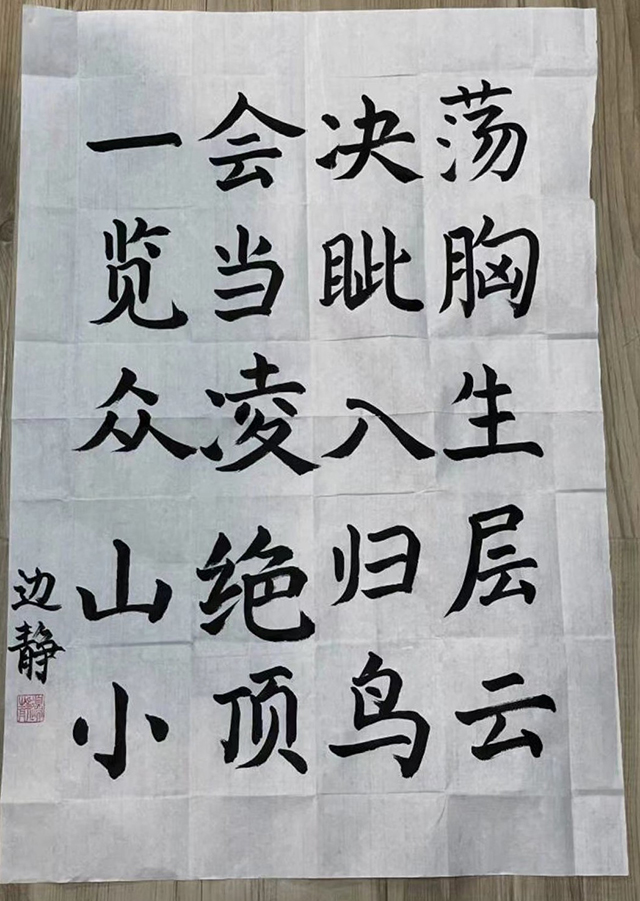 荡胸生层云
决眦入归鸟
会当凌绝顶
一览众山小
边静